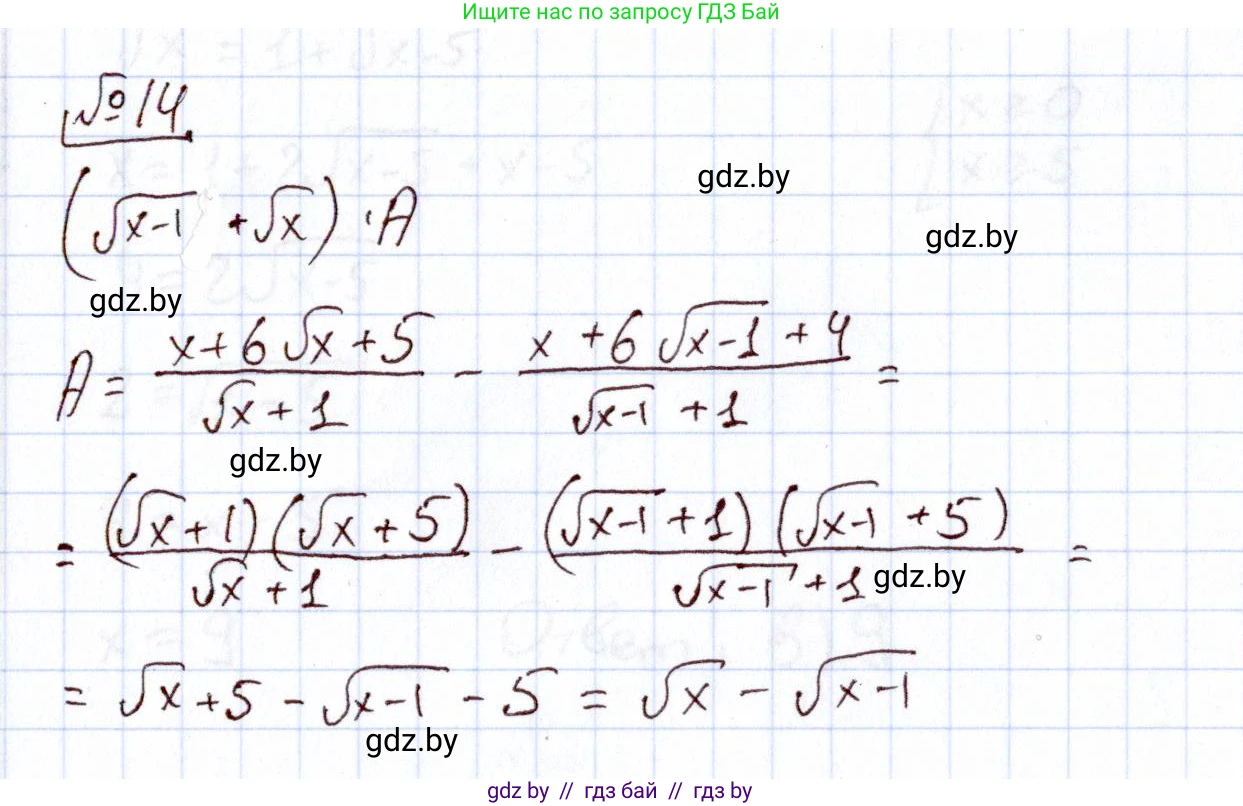 Ищите нас по запросу ГДЗ Бай
№14
(√(x-1) + √x) · A
gdz.by
gdz.by
gdz.by
A = (x + 6√x + 5)/(√x + 1) - (x + 6√(x-1) + 4)/(√(x-1) + 1) =
gdz.by
= ((√x + 1)(√x + 5))/(√x + 1) - ((√(x-1) + 1)(√(x-1) + 5))/(√(x-1) + 1) =
gdz.by
= √x + 5 - √(x-1) - 5 = √x - √(x-1)
gdz.by
gdz by // гдз бай // гдз by